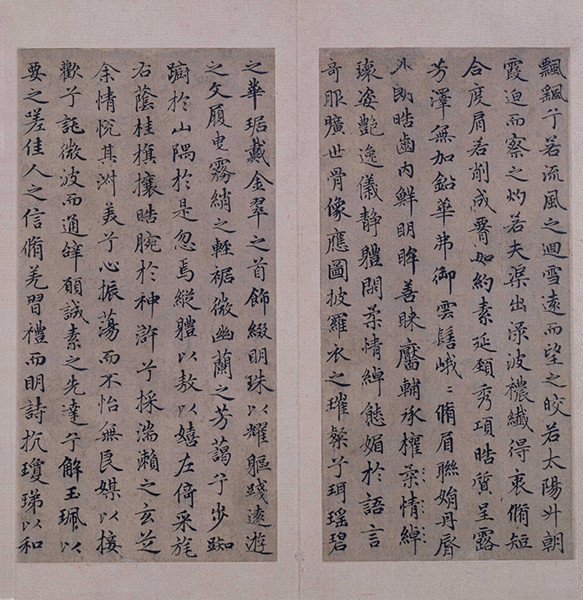 飄颻兮若流風之迴雪遠而望之皎若太陽升朝
霞迫而察之灼若夫渠出淥波穠纖得衷脩短
合度肩若削成腰如約素延頸秀項皓質呈露
芳澤無加鉛華弗御雲髻峨〻脩眉聯娟丹脣
外朗皓齒內鮮明眸善睞靨輔承權柔情綽
瓌姿艷逸儀靜體閑柔情綽態媚於語言
奇服曠世骨像應圖披羅衣之璀粲兮珥瑤碧
之華琚戴金翠之首飾綴明珠以耀軀踐遠遊
之文履曳霧綃之輕裾微幽蘭之芳藹兮步踟
躕於山隅於是忽焉縱體以敖以嬉左倚采旄
右蔭桂旗攘皓腕於神滸兮採湍瀨之玄芝
余情悅其淑美兮心振蕩而不怡無良媒以接
歡兮託微波而通辭願誠素之先達兮解玉珮以
要之嗟佳人之信脩羌習禮而明詩抗瓊珶以和